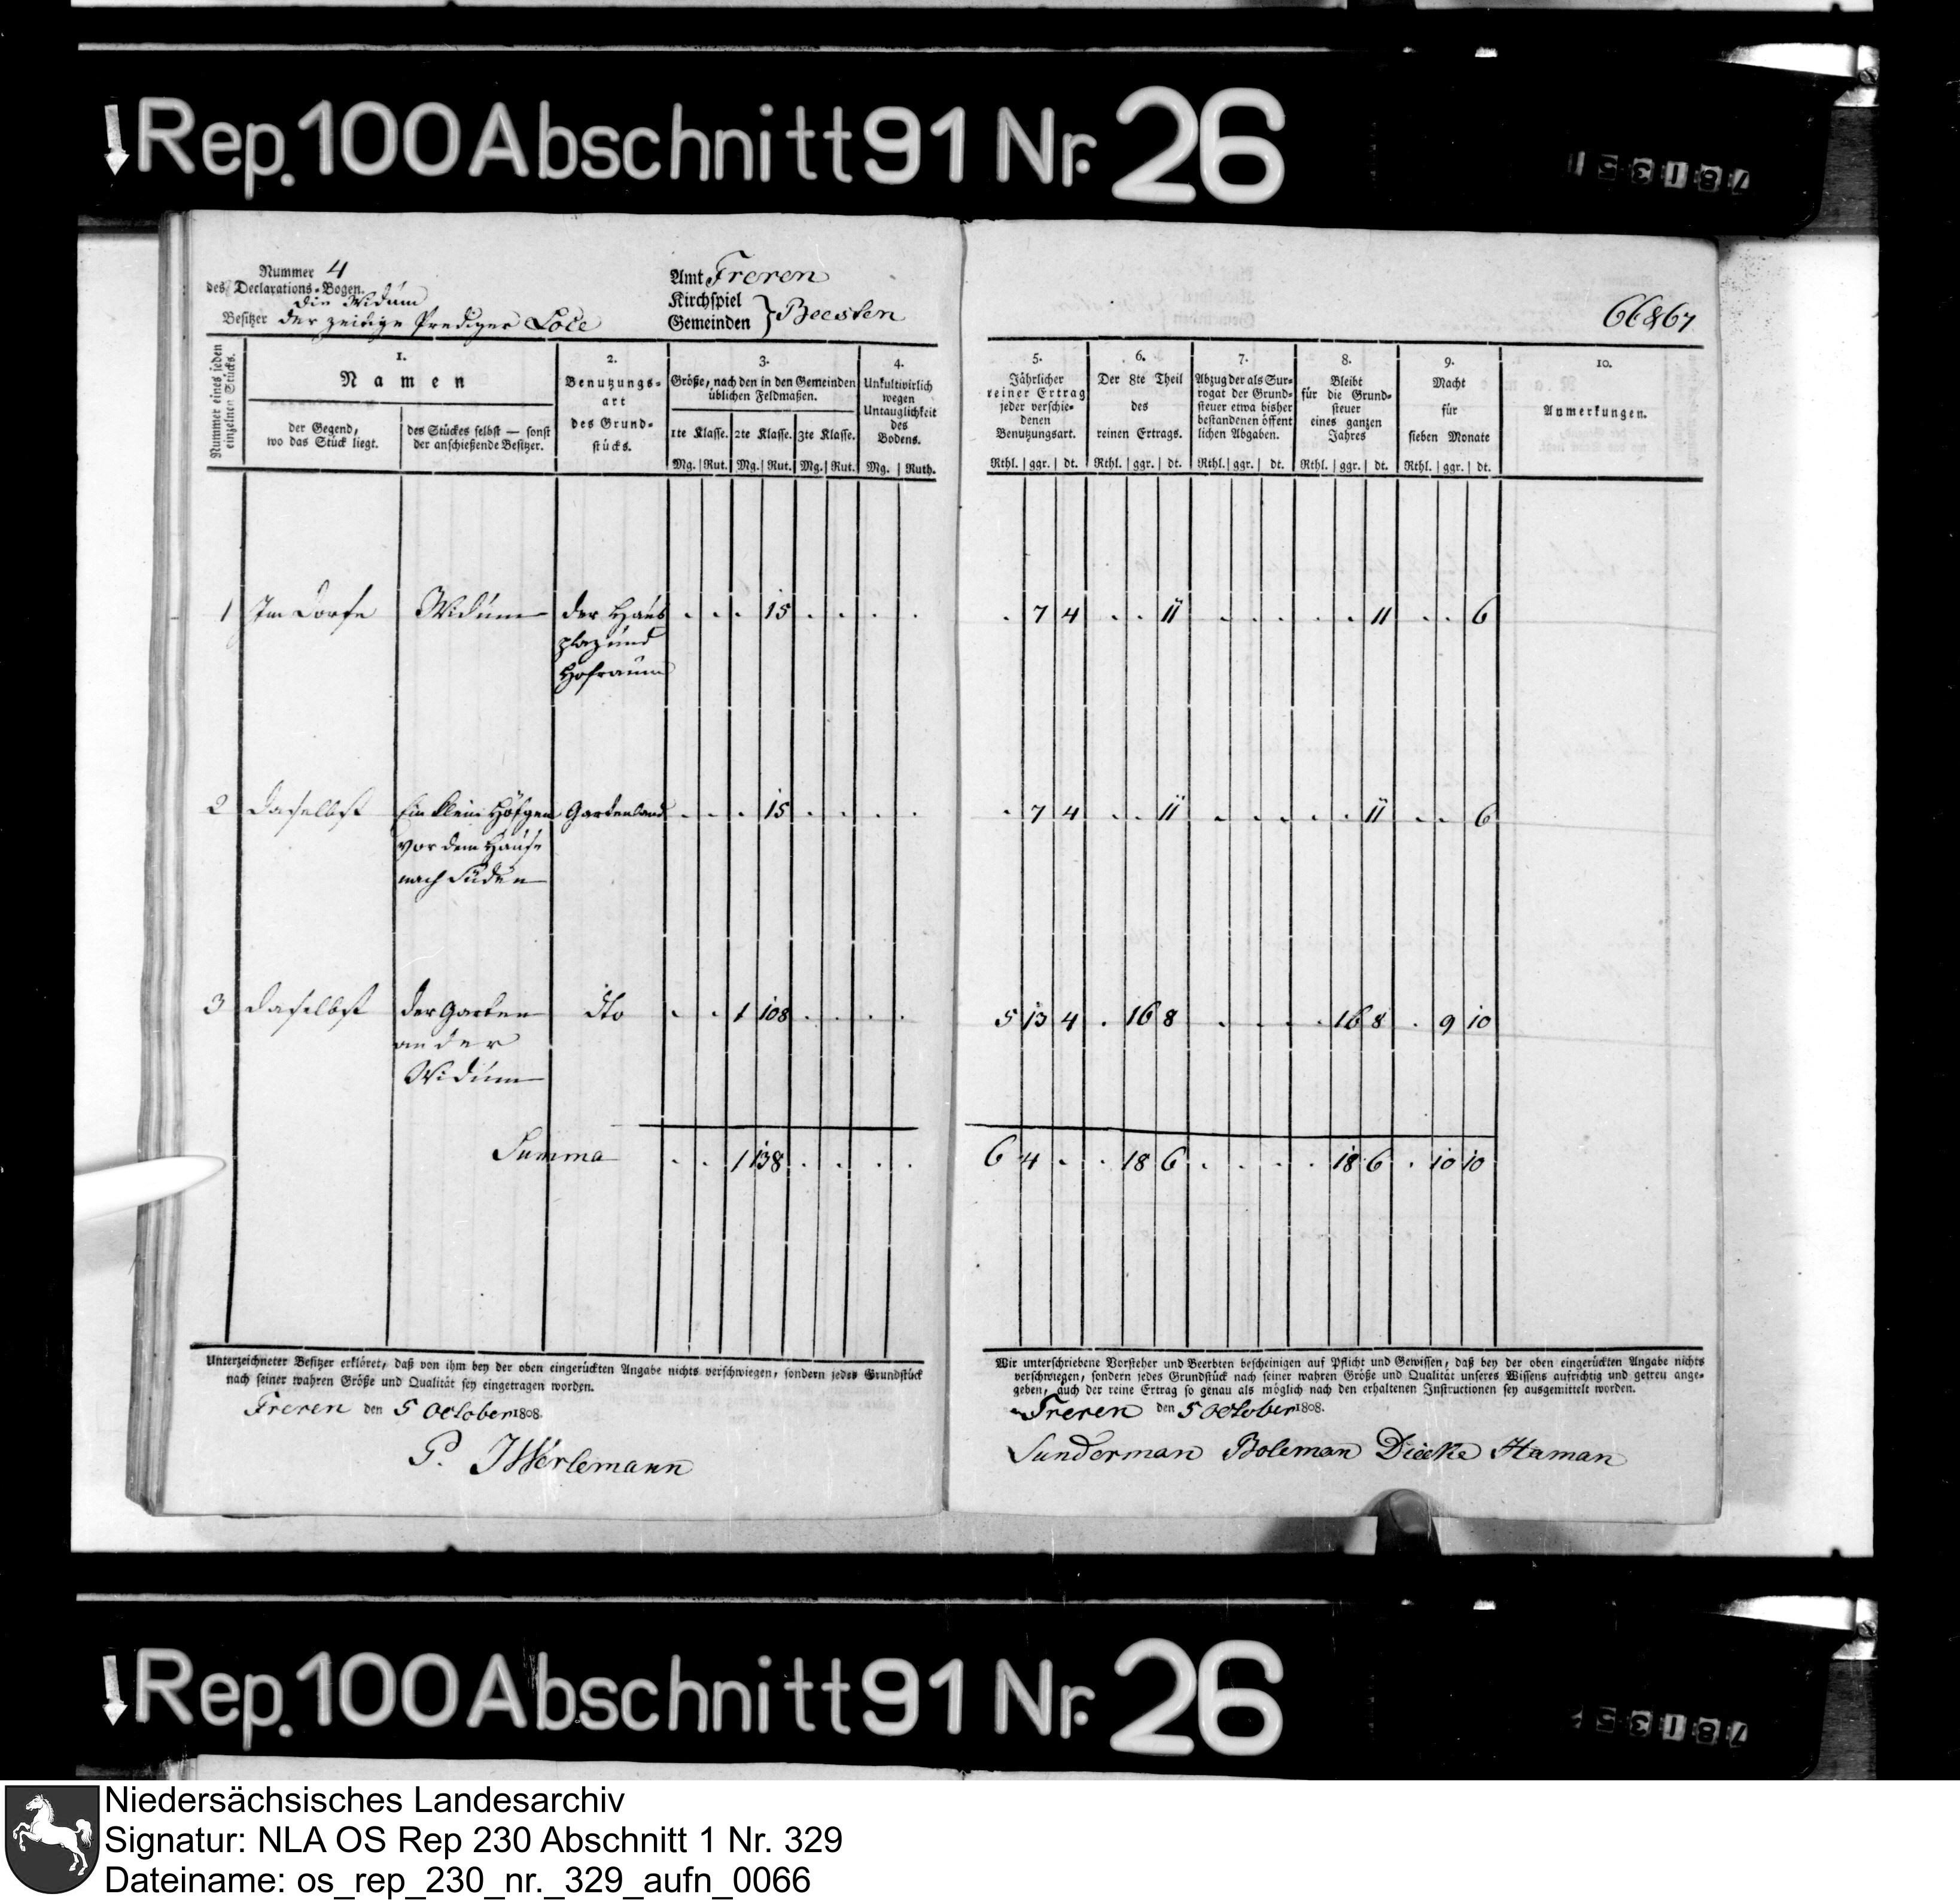 Rep. 100 Abschnitt 91 Nr. 26
Nummer 4
des Declarations-Bogen.
die Widum
Besitzer der zeitige Prediger Lole
Amt Freren
Kirchspiel
Gemeinden } Beesten
66&67
Nummer eines jeden einzelnen Stücks.
1.
Namen
der Gegend,
wo das Stück liegt.
des Stückes selbst — sonst
der anschießende Besitzer.
2.
Benutzungs-
art
des Grund-
stücks.
3.
Größe, nach den in den Gemeinden
üblichen Feldmaßen.
1te Klasse. 2te Klasse. 3te Klasse.
Mg. Rut. Mg. Rut. Mg. Rut.
4.
Unkultivirlich
wegen
Untauglichkeit
des
Bodens.
Mg. Ruth.
5.
Jährlicher
reiner Ertrag
jeder verschie-
denen
Benutzungsart.
Rthl. ggr. dt.
6.
Der 8te Theil
des
reinen Ertrags.
Rthl. ggr. dt.
7.
Abzug der als Sur-
rogat der Grund-
steuer etwa bisher
bestandenen öffent
lichen Abgaben.
Rthl. ggr. dt.
8.
Bleibt
für die Grund-
steuer
eines ganzen
Jahres
Rthl. ggr. dt.
9.
Macht
für
sieben Monate
Rthl. ggr. dt.
10.
Anmerkungen.
1 Im Dorfe Widum der Haus 15 7 4 11 11 6
plaz und
Hofraum
2 daselbst Ein klein Höfgen Gartenland 15 7 4 11 11 6
vor dem Hause
nach Süden
3 daselbst der Garten dto 1 108 5 13 4 16 8 16 8 9 10
an der
Widum
Summa 1 138 6 4 18 6 18 6 10 10
Unterzeichneter Besitzer erkläret, daß von ihm bey der oben eingerückten Angabe nichts verschwiegen, sondern jedes Grundstück
nach seiner wahren Größe und Qualität sey eingetragen worden.
Freren den 5 October 1808.
P. JWerlemann
Wir unterschriebene Vorsteher und Beerbten bescheinigen auf Pflicht und Gewissen, daß bey der oben eingerückten Angabe nichts
verschwiegen, sondern jedes Grundstück nach seiner wahren Größe und Qualität unseres Wissens aufrichtig und getreu ange-
geben, auch der reine Ertrag so genau als möglich nach den erhaltenen Instructionen sey ausgemittelt worden.
Freren den 5 October 1808.
Sunderman Boleman Diecke Haman
Rep. 100 Abschnitt 91 Nr. 26
Niedersächsisches Landesarchiv
Signatur: NLA OS Rep 230 Abschnitt 1 Nr. 329
Dateiname: os_rep_230_nr._329_aufn_0066